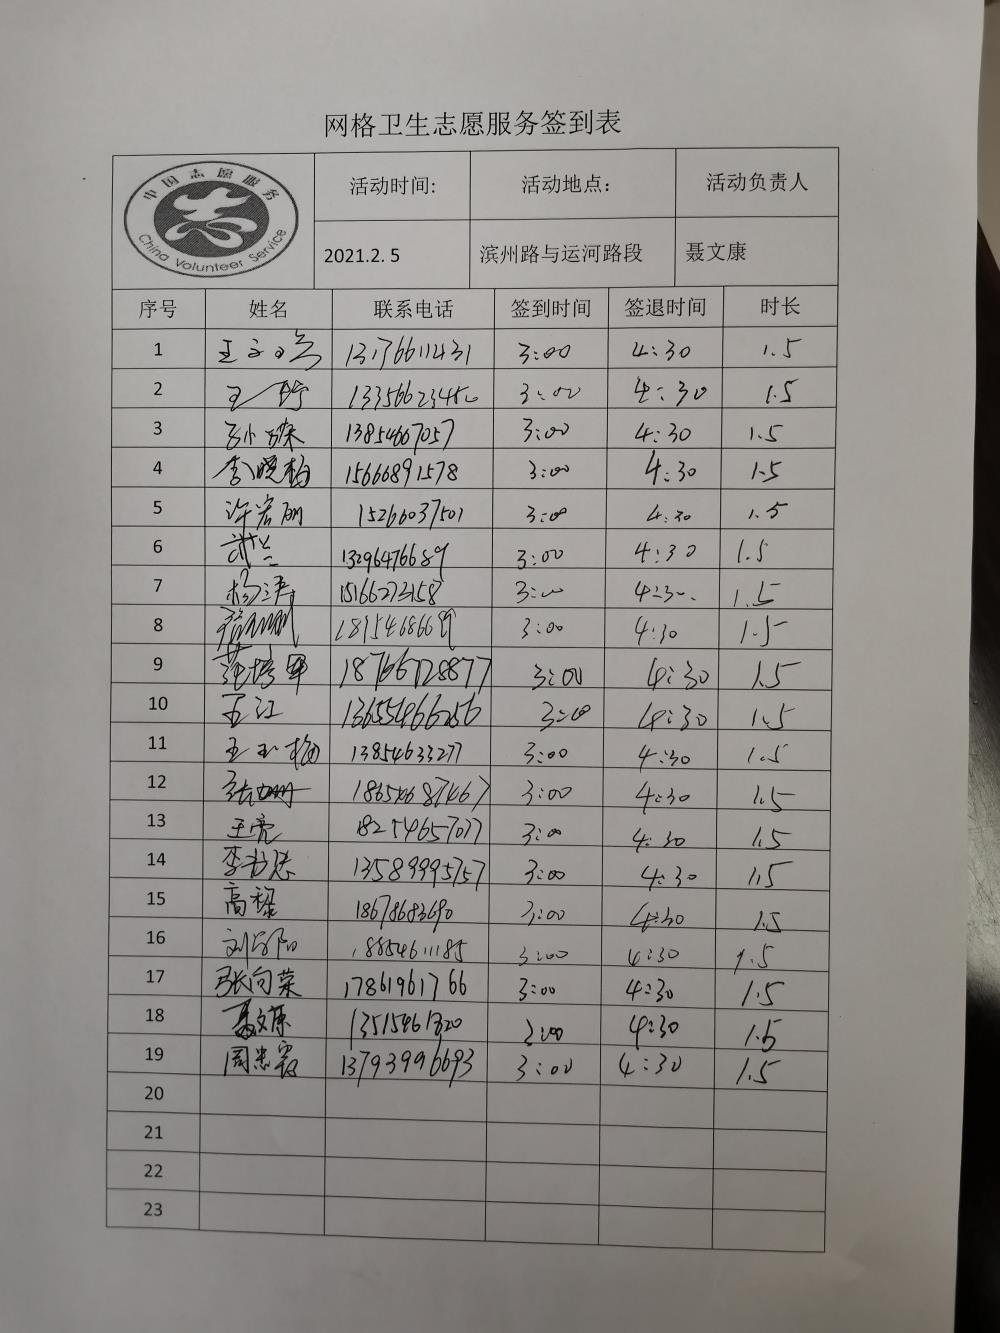 网格卫生志愿服务签到表
中国志愿服务
China Volunteer Service
活动时间: 活动地点: 活动负责人
2021.2.5 滨州路与运河路段 聂文康
序号 姓名 联系电话 签到时间 签退时间 时长
1 13176611431 3:00 4:30 1.5
2 3:00 4:30 1.5
3 13854667057 3:00 4:30 1.5
4 李晓梅 15666891578 3:00 4:30 1.5
5 许宏丽 15266037501 3:00 4:30 1.5
6 武兰 13296476689 3:00 4:30 1.5
7 杨涛 15166273158 3:00 4:30 1.5
8 18954686699 3:00 4:30 1.5
9 18766728877 3:00 4:30 1.5
10 王江 13655466256 3:00 4:30 1.5
11 王玉梅 13854633277 3:00 4:30 1.5
12 张姗 18654687467 3:00 4:30 1.5
13 王亮 18254657077 3:00 4:30 1.5
14 13589995757 3:00 4:30 1.5
15 高禄 18678683690 3:00 4:30 1.5
16 18854611185 3:00 4:30 1.5
17 张向荣 17861961766 3:00 4:30 1.5
18 聂文康 13515461320 3:00 4:30 1.5
19 周忠霞 13793996693 3:00 4:30 1.5
20
21
22
23